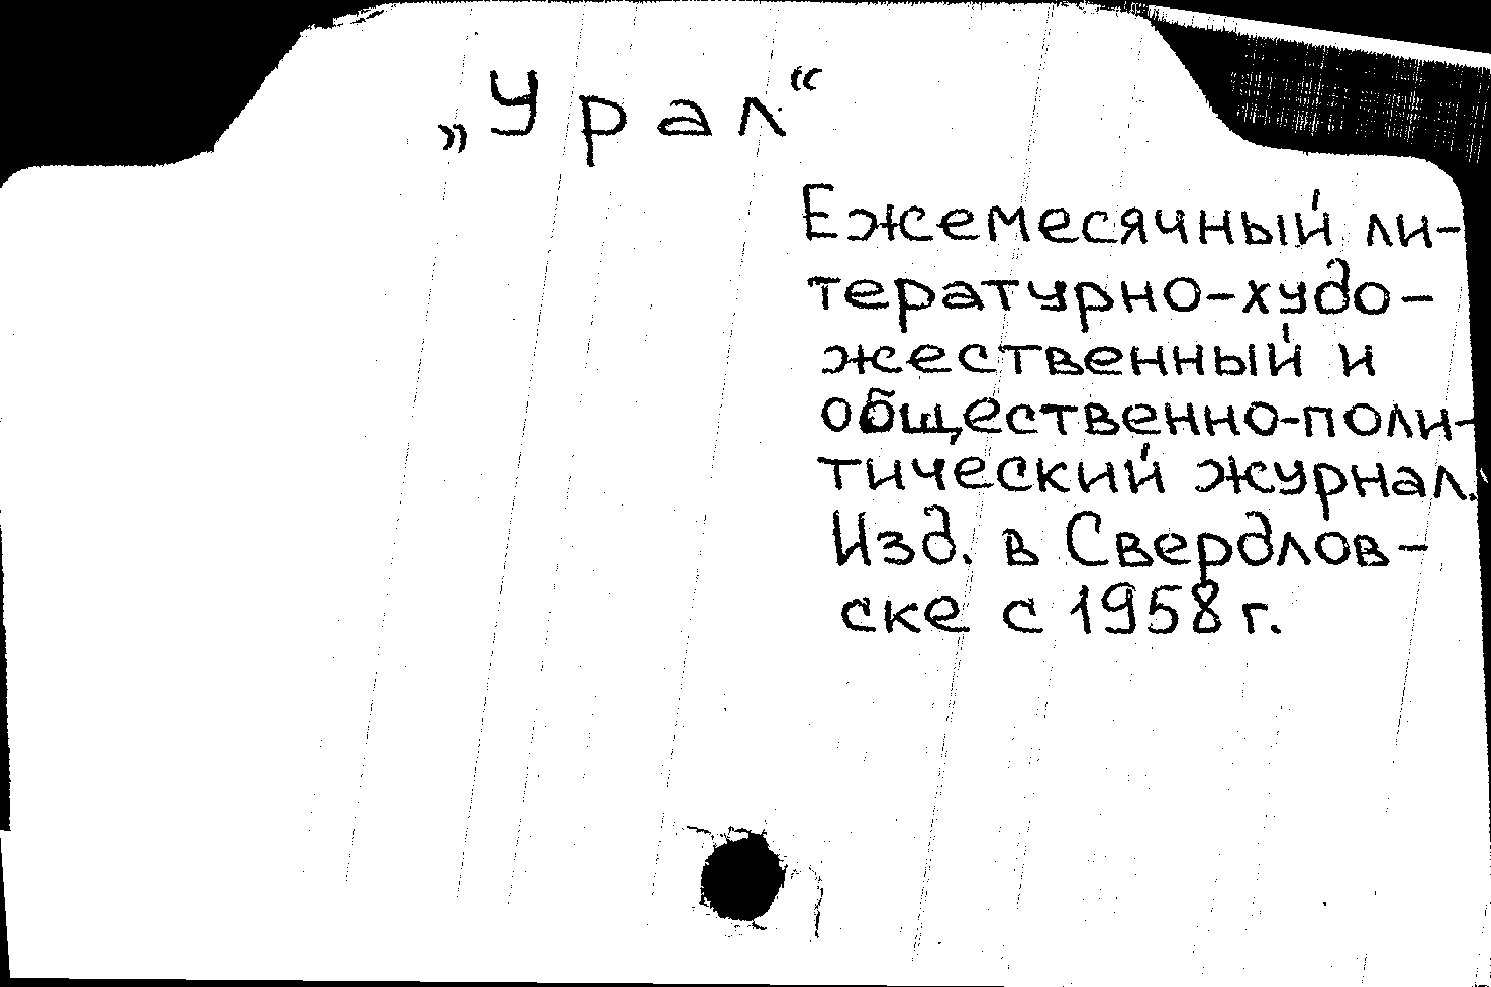 „Урал“
Ежемесячный ли-
тературно-худо-
жественный и
общественно-поли-
тический журнал.
Изд. в Свердлов-
ске с 1958 г.